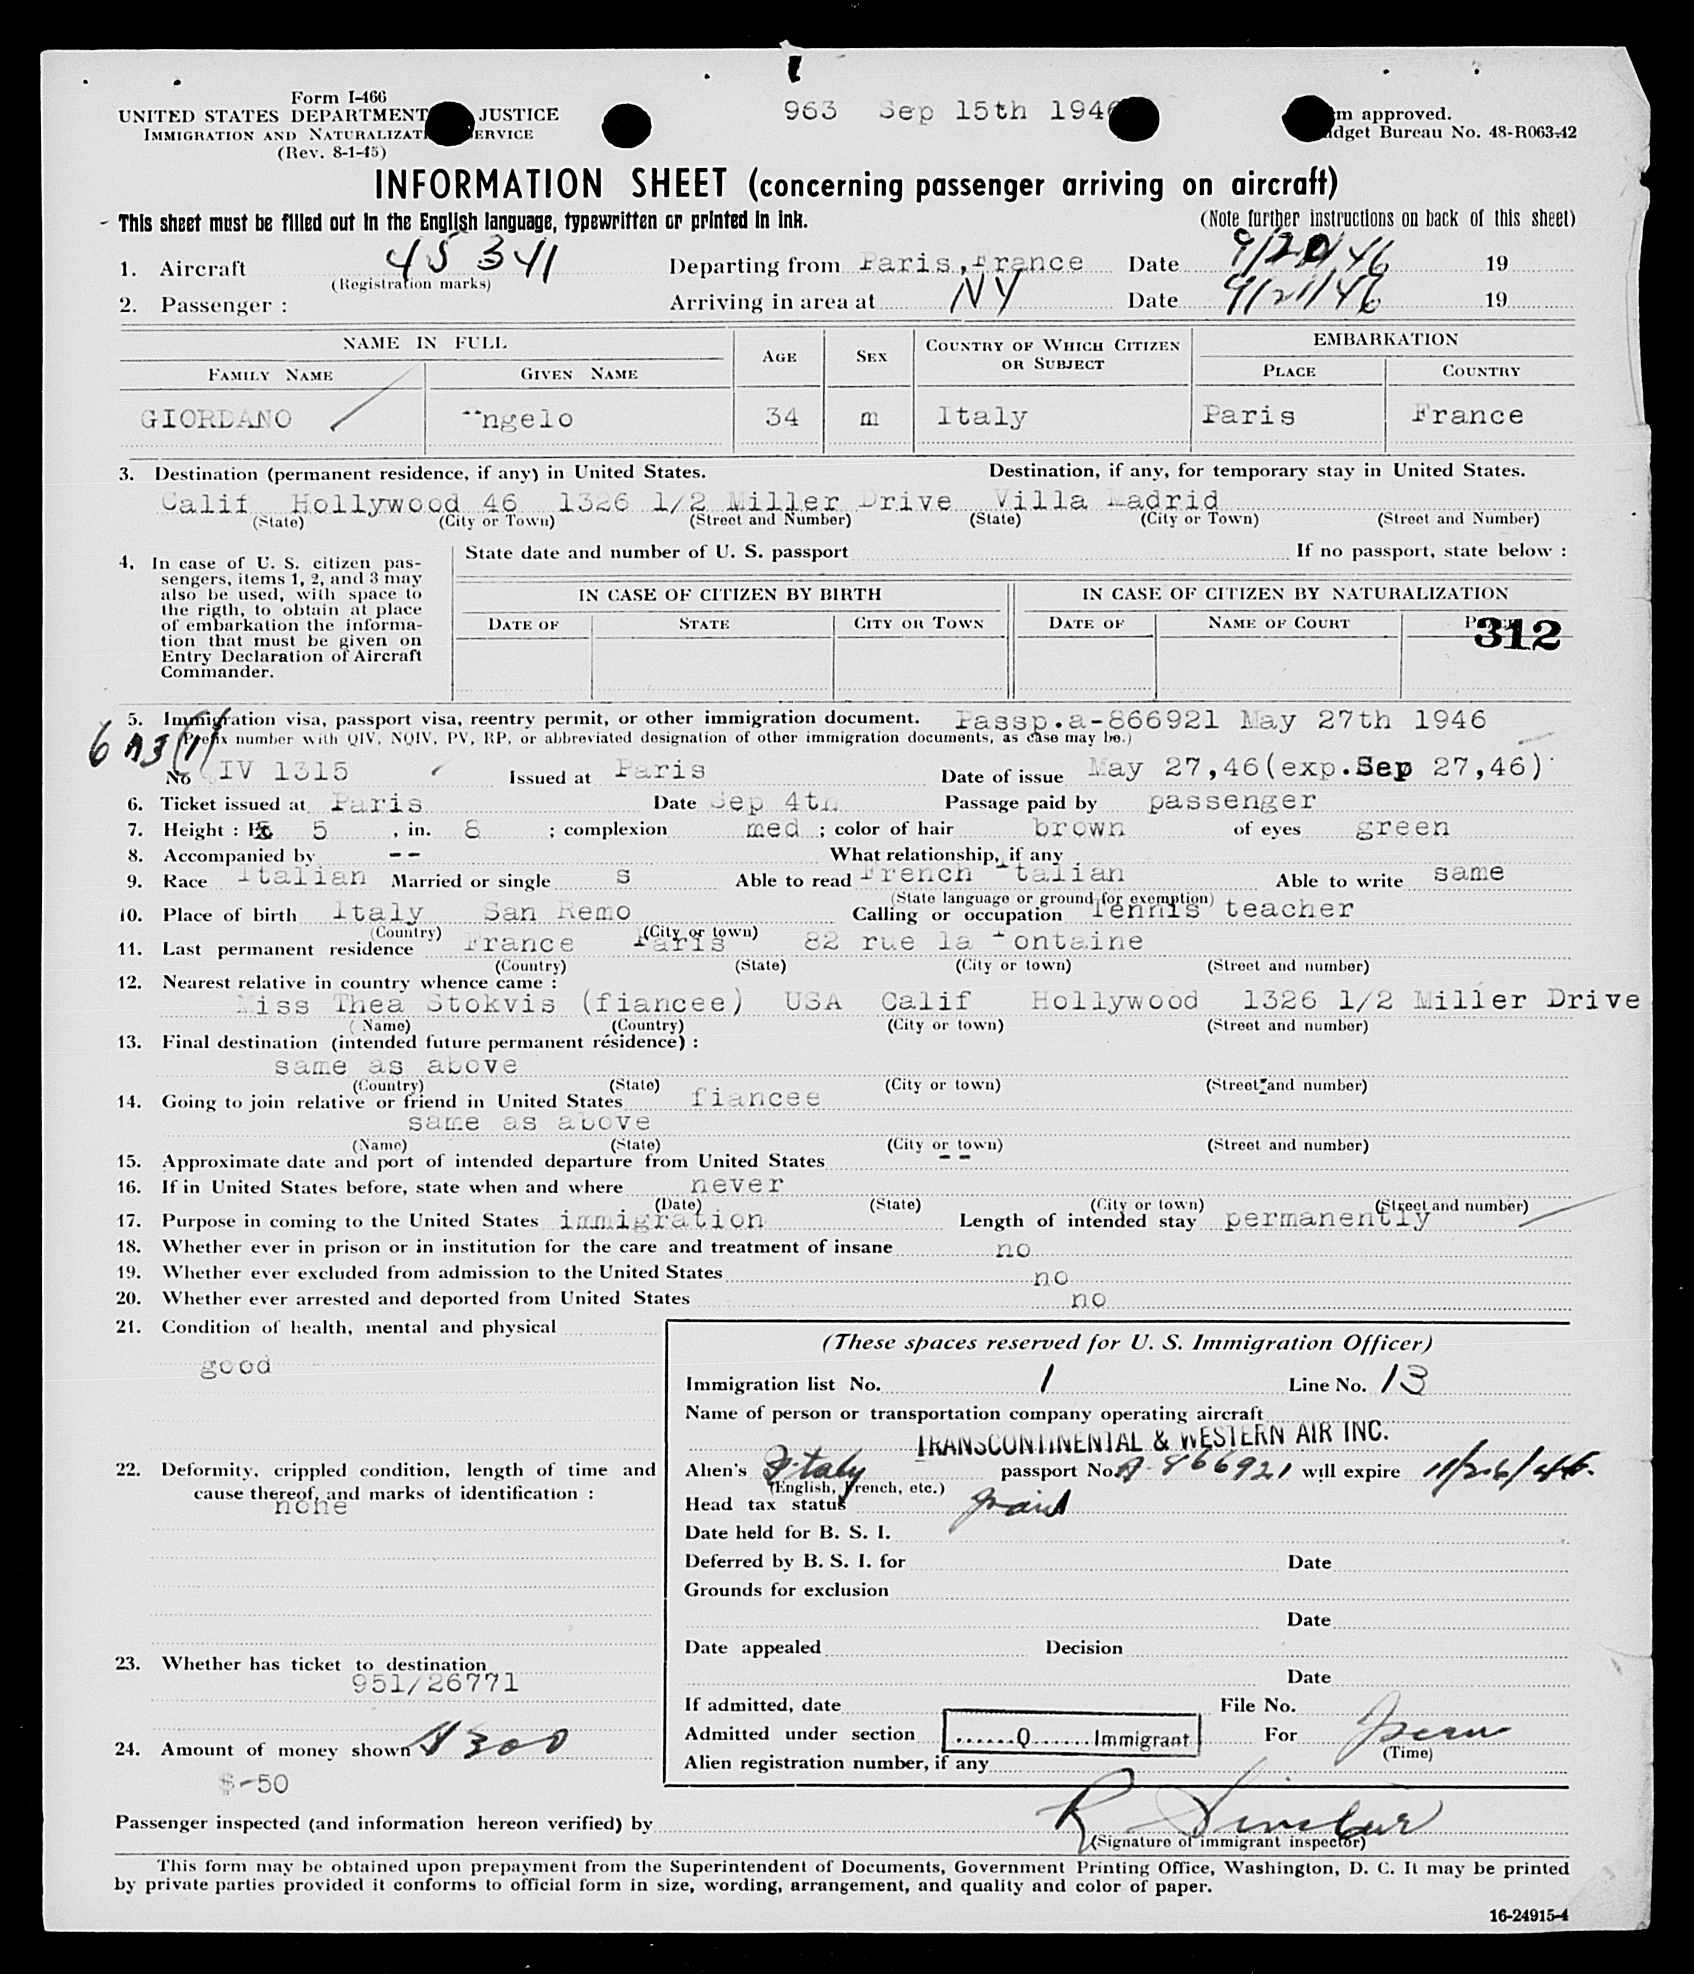 Form I-466
UNITED STATES DEPARTMENT JUSTICE
IMMIGRATION AND NATURALIZAT ERVICE
(Rev. 8-1-45)
963 Sep 15th 1946
m approved.
dget Bureau No. 48-R063-42
INFORMATION SHEET (concerning passenger arriving on aircraft)
This sheet must be filled out in the English language, typewritten or printed in ink.
(Note further instructions on back of this sheet)
1. Aircraft 45341 Departing from Paris, France Date 9/20/46 19
(Registration marks)
2. Passenger : Arriving in area at NY Date 9/21/46 19
NAME IN FULL AGE SEX COUNTRY OF WHICH CITIZEN OR SUBJECT EMBARKATION
FAMILY NAME GIVEN NAME PLACE COUNTRY
GIORDANO ngelo 34 m Italy Paris France
3. Destination (permanent residence, if any) in United States. Destination, if any, for temporary stay in United States.
Calif Hollywood 46 1326 1/2 Miller Drive Villa Madrid
(State) (City or Town) (Street and Number) (State) (City or Town) (Street and Number)
4. In case of U. S. citizen pas-
sengers, items 1, 2, and 3 may
also be used, with space to
the rigth, to obtain at place
of embarkation the informa-
tion that must be given on
Entry Declaration of Aircraft
Commander.
State date and number of U. S. passport If no passport, state below :
IN CASE OF CITIZEN BY BIRTH IN CASE OF CITIZEN BY NATURALIZATION
DATE OF STATE CITY OR TOWN DATE OF NAME OF COURT
312
5. Immigration visa, passport visa, reentry permit, or other immigration document. Passp.a-866921 May 27th 1946
(Prefix number with QIV, NQIV, PV, RP, or abbreviated designation of other immigration documents, as case may be.)
No QIV 1315 Issued at Paris Date of issue May 27,46(exp.Sep 27,46)
6. Ticket issued at Paris Date Sep 4th Passage paid by passenger
7. Height : Ft. 5 , in. 8 ; complexion med ; color of hair brown of eyes green
8. Accompanied by -- What relationship, if any
9. Race Italian Married or single s Able to read French Italian Able to write same
(State language or ground for exemption)
10. Place of birth Italy San Remo Calling or occupation Tennis teacher
(Country) (City or town)
11. Last permanent residence France Paris 82 rue la Fontaine
(Country) (State) (City or town) (Street and number)
12. Nearest relative in country whence came :
Miss Thea Stokvis (fiancee) USA Calif Hollywood 1326 1/2 Miller Drive
(Name) (Country) (City or town) (Street and number)
13. Final destination (intended future permanent résidence) :
same as above
(Country) (State) (City or town) (Street and number)
14. Going to join relative or friend in United States fiancee
same as above
(Name) (State) (City or town) (Street and number)
15. Approximate date and port of intended departure from United States --
16. If in United States before, state when and where never
(Date) (State) (City or town) (Street and number)
17. Purpose in coming to the United States immigration Length of intended stay permanently
18. Whether ever in prison or in institution for the care and treatment of insane no
19. Whether ever excluded from admission to the United States no
20. Whether ever arrested and deported from United States no
21. Condition of health, mental and physical
good
22. Deformity, crippled condition, length of time and
cause thereof, and marks of identification :
none
23. Whether has ticket to destination
951/26771
24. Amount of money shown $300
$-50
(These spaces reserved for U. S. Immigration Officer)
Immigration list No. 1 Line No. 13
Name of person or transportation company operating aircraft
TRANSCONTINENTAL & WESTERN AIR INC.
Alien's Italy passport No. A-866921 will expire 11/26/46.
(English, French, etc.)
Head tax status paid
Date held for B. S. I.
Deferred by B. S. I. for Date
Grounds for exclusion
Date
Date appealed Decision
Date
If admitted, date File No.
Admitted under section ......Q.......Immigrant For Perm
(Time)
Alien registration number, if any
Passenger inspected (and information hereon verified) by R Sinclair
(Signature of immigrant inspector)
This form may be obtained upon prepayment from the Superintendent of Documents, Government Printing Office, Washington, D. C. It may be printed
by private parties provided it conforms to official form in size, wording, arrangement, and quality and color of paper.
16-24915-4